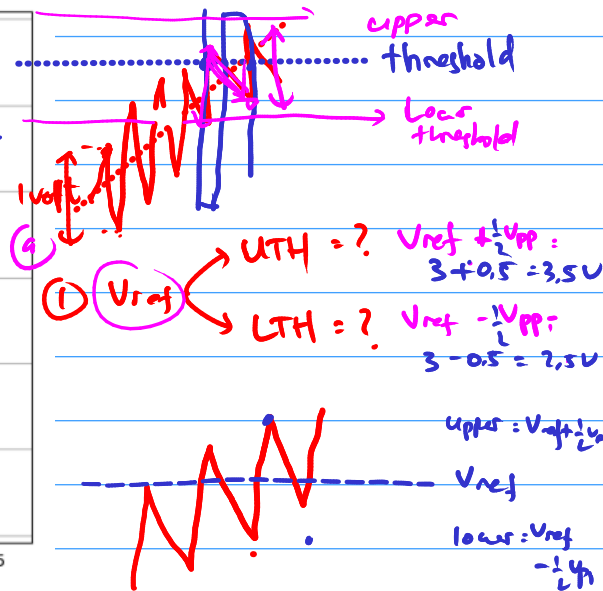 upper
threshold
Lower
threshold
1volt
a
① Vref
UTH = ?
Vref + ½Vpp =
3+0.5 = 3,5V
LTH = ?
Vref - ½Vpp =
3 - 0.5 = 2,5V
upper = Vref + ½V
Vref
lower = Vref
- ½Vp